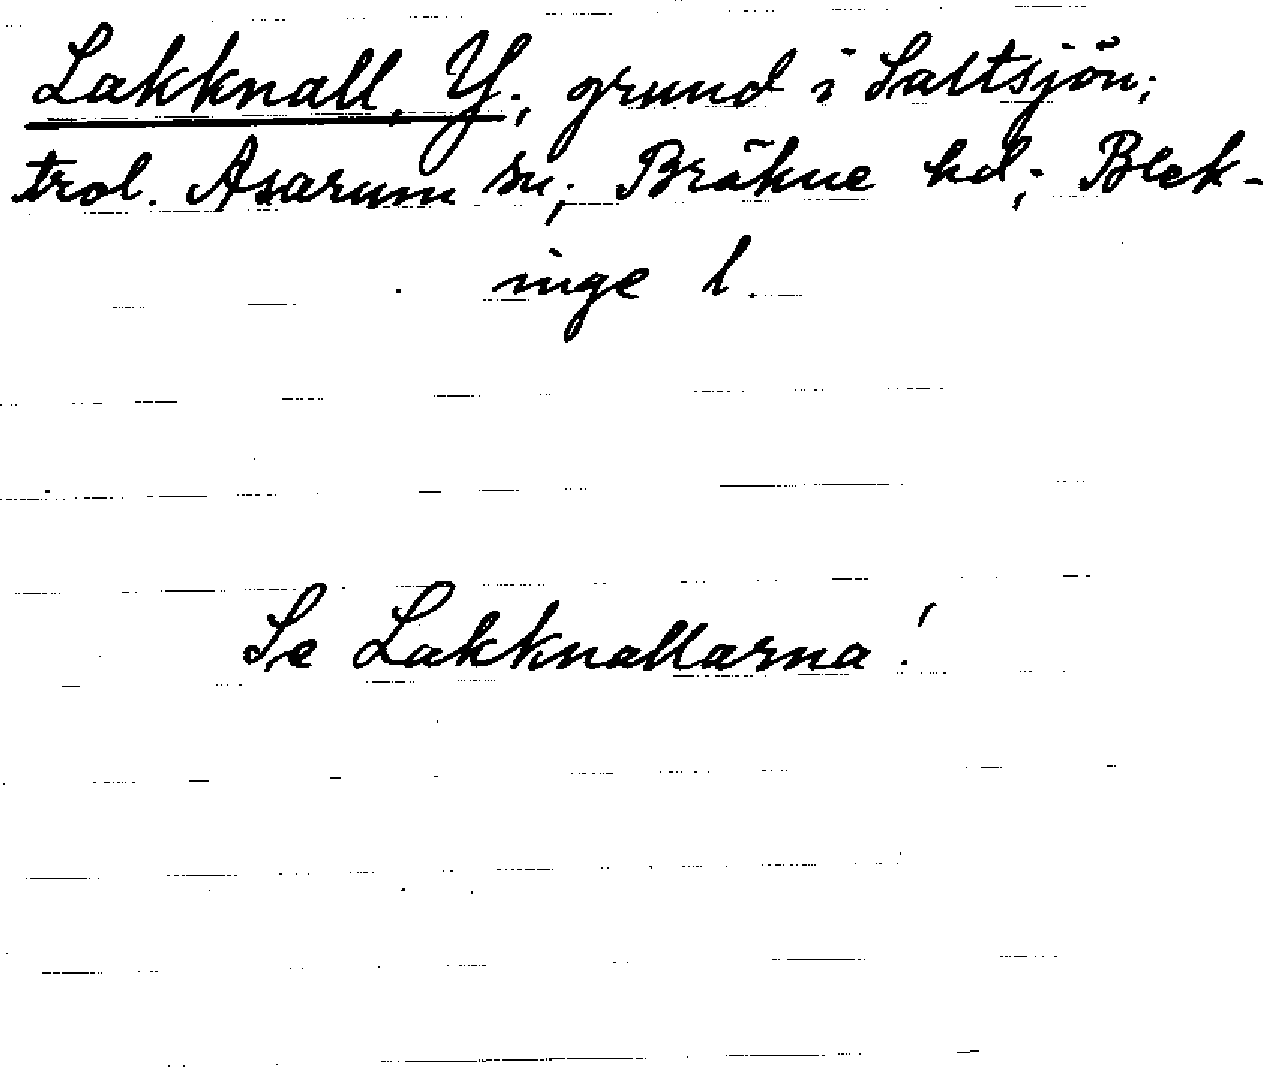 Lakknall, Y., grund i Saltsjön;
trol. Asarum sn; Bräkne hd; Blek-
inge l.
Se Lakknallarna!